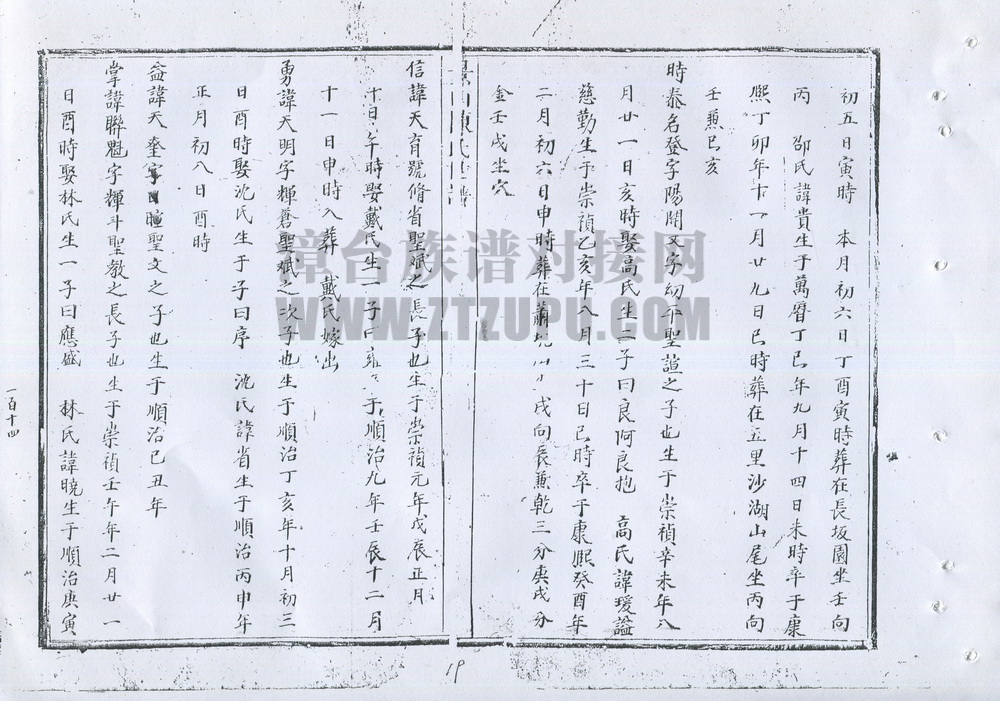 初五日寅時　本月初六日丁酉寅時葬在長坂園坐壬向
丙　邵氏諱貴生于萬曆丁巳年九月十四日未時卒于康
熙丁卯年十一月廿九日巳時葬在五里沙湖山尾坐丙向
壬兼巳亥
時泰名登字陽開文字幼平聖諠之子也生于崇禎辛未年八
月廿一日亥時娶高氏生二子曰良阿良抱　高氏諱瑗謚
慈勤生于崇禎乙亥年八月三十日巳時卒于康熙癸酉年
二月初六日申時葬在 戌向辰兼乾三分庚戌分
金壬戌坐穴
陳氏世譜
信諱天育號脩省聖斌之長子也生于崇禎元年戊辰正月
十日午時娶戴氏生一子曰 于順治九年壬辰十二月
十一日申時入葬　戴氏嫁出
勇諱天明字輝蒼聖斌之次子也生于順治丁亥年十月初三
日酉時娶沈氏生于子曰序　沈氏諱省生于順治丙申年
正月初八日酉時
益諱天奎字曈聖文之子也生于順治己丑年
掌諱聯魁字輝斗聖教之長子也生于崇禎壬午年二月廿一
日酉時娶林氏生一子曰應盛　林氏諱曉生于順治庚寅
一百十四
19
漳台族谱对接网
WWW.ZTZUPU.COM